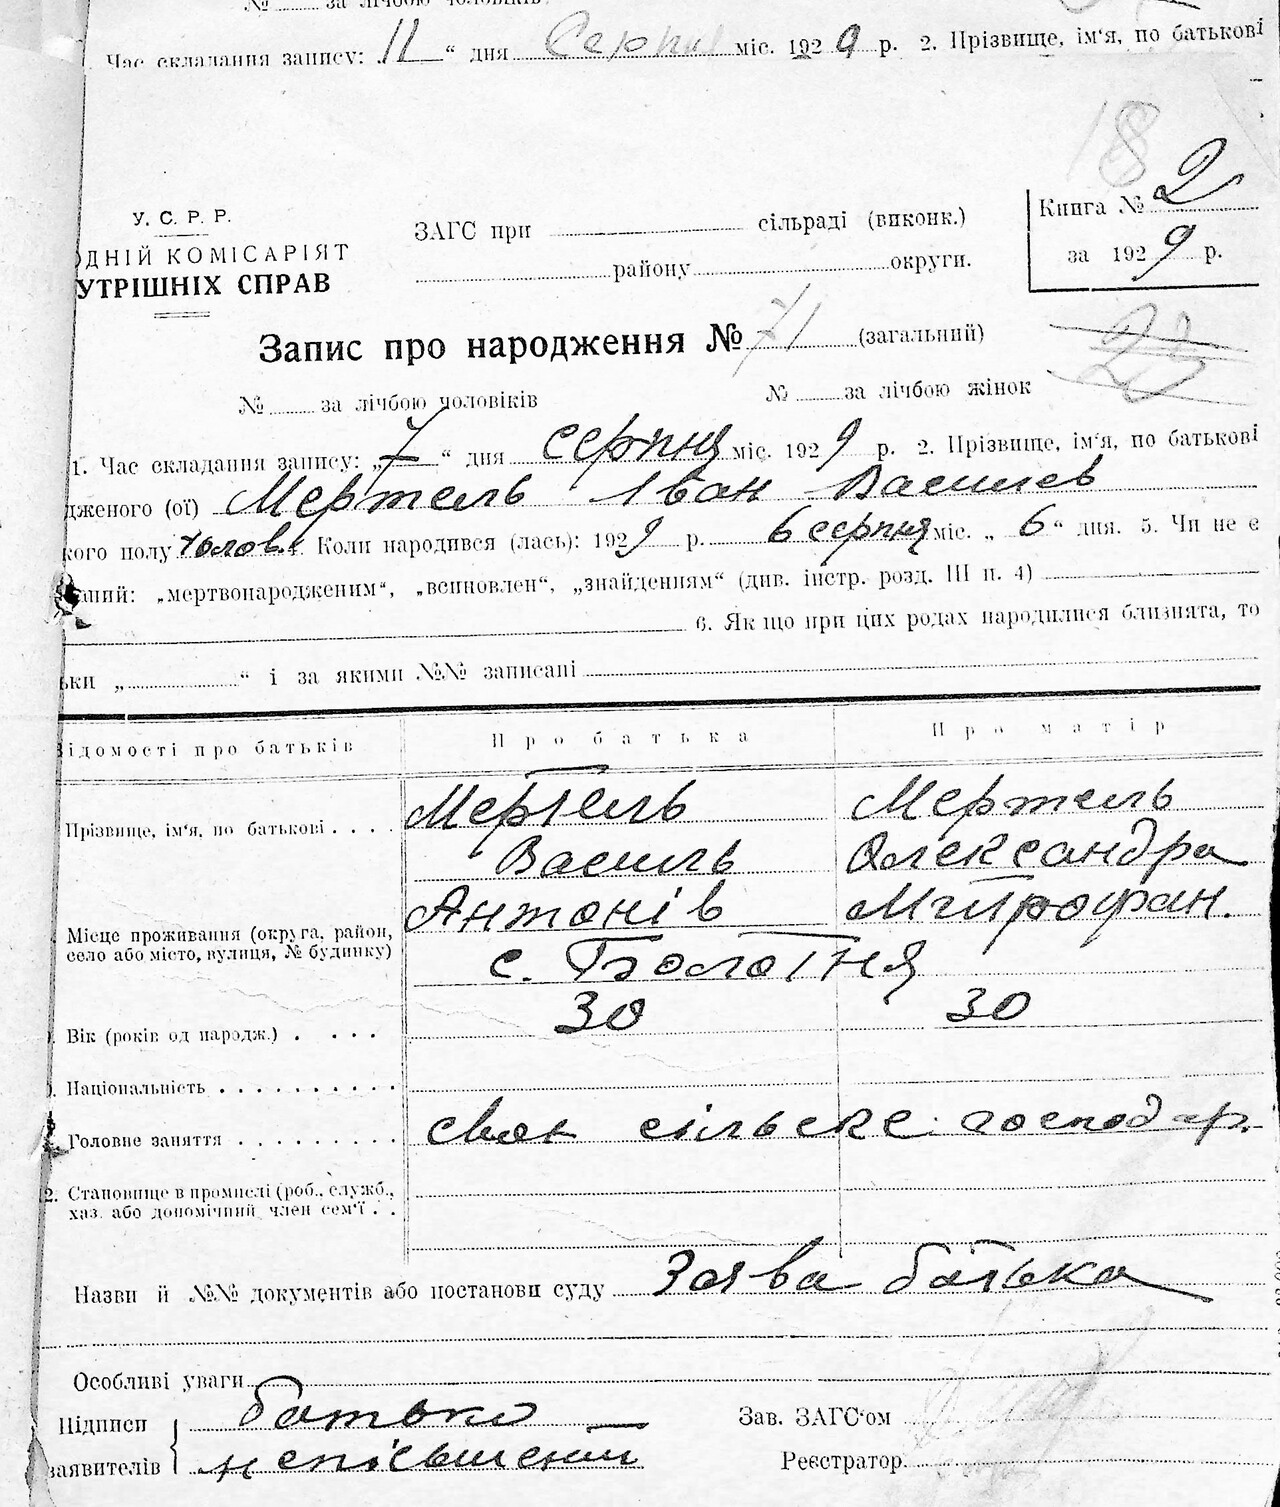 № за лічбою чоловіків
Час складання запису: 11 “ дня Серпня міс. 1929 р. 2. Прізвище, ім‘я, по батькові
18
У. С. Р. Р.
ОДНІЙ КОМІСАРІЯТ
УТРІШНІХ СПРАВ
ЗАГС при сільраді (виконк.)
району округи.
Книга № 2
за 1929 р.
Запис про народження № 71 (загальний)
№ за лічбою чоловіків № за лічбою жінок
1. Час складання запису: „7“ дня серпня міс. 1929 р. 2. Прізвище, ім‘я, по батькові
дженого (ої) Мертель Іван Васильев
кого полу чолов. Коли народився (лась): 1929 р. 6 серпня міс. „ 6 “ дня. 5. Чи не є
саний: „мертвонародженим“, „всиновлен“, „знайденням“ (див. інстр. розд. III п. 4)
6. Якщо при цих родах народилися близнята, то
ьки „ “ і за якими №№ записані
Відомості про батьків Про батька Про матір
Прізвище, ім‘я, по батькові . . . . Мертель Мертель
Василь Олександра
Антонів Митрофан.
Місце проживання (округа, район,
село або місто, вулиця, № будинку)
с. Болотня
Вік (років од народж.) . . . . 30 30
Національність . . . . . . . . . .
Головне заняття . . . . . . . . . сільске господар.
2. Становище в промислі (роб., служб.,
хаз. або допомічний член сем‘ї . .
Назви й №№ документів або постанови суду Заява батька
Особливі уваги
Підписи батько
заявителів неписьмений
Зав. ЗАГС‘ом
Реєстратор